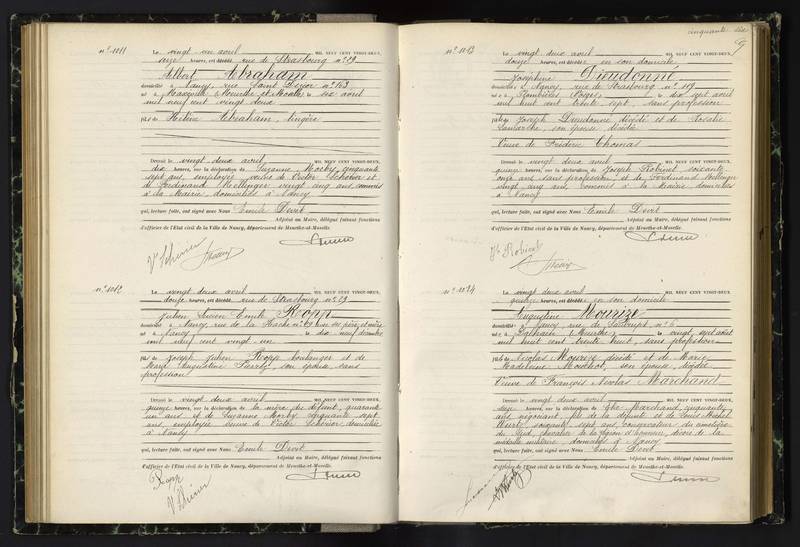 cinquante six
9
n° 1011
Le vingt un avril MIL NEUF CENT VINGT-DEUX,
heures, est décédé rue de Strasbourg n° 29
Albert Abraham
domicilié à Nancy, rue Saint Dizier n° 163
né à Maxéville Meurthe et Moselle le six avril
mil neuf cent vingt deux
fils de Hélène Abraham, lingère
Dressé le vingt deux avril MIL NEUF CENT VINGT-DEUX,
dix heures, sur la déclaration de Suzanne Marby, cinquante
sept ans, employée, veuve de Victor Schérier et
de Ferdinand Mellinger vingt cinq ans, commis
à la Mairie, domiciliés à Nancy
qui, lecture faite, ont signé avec Nous Emile Devit
Adjoint au Maire, délégué faisant fonctions
d'officier de l'Etat civil de la Ville de Nancy, département de Meurthe-et-Moselle.
n° 1012
Le vingt deux avril MIL NEUF CENT VINGT-DEUX,
douze heures, est décédé rue de Strasbourg n° 29
Julien Emile Ropp
domicilié à Nancy, rue de la Hache n° 69 chez ses père et mère
né à Nancy le dix neuf décembre
mil neuf cent vingt un
fils de Joseph Julien Ropp boulanger et de
Marie Augustine son épouse, sans
profession
Dressé le vingt deux avril MIL NEUF CENT VINGT-DEUX,
quinze heures, sur la déclaration de la mère du défunt, quarante
ans et de Suzanne Marby cinquante sept
ans, employée veuve de Victor Schérier domiciliées
à Nancy
qui, lecture faite, ont signé avec Nous Emile Devit
Adjoint au Maire, délégué faisant fonctions
d'officier de l'Etat civil de la Ville de Nancy, département de Meurthe-et-Moselle.
Ropp
n° 1013
Le vingt deux avril MIL NEUF CENT VINGT-DEUX,
douze heures, est décédée en son domicile
Joséphine Dieudonné
domiciliée à Nancy, rue de Strasbourg n° 119
née à Plombières Vosges le dix sept avril
mil huit cent trente sept, sans profession
fille de Joseph Dieudonné décédé et de Rosalie
son épouse, décédée
Veuve de Frédéric Thomas
Dressé le vingt deux avril MIL NEUF CENT VINGT-DEUX,
quinze heures, sur la déclaration de Joseph Robinet, soixante
ans, sans profession, et de Ferdinand Mellinger
vingt cinq ans, commis à la Mairie domiciliés
à Nancy
qui, lecture faite, ont signé avec Nous Emile Devit
Adjoint au Maire, délégué faisant fonctions
d'officier de l'Etat civil de la Ville de Nancy, département de Meurthe-et-Moselle.
Robinet
n° 1014
Le vingt deux avril MIL NEUF CENT VINGT-DEUX,
quinze heures, est décédée en son domicile
Augustine Mourize
domiciliée à Nancy, rue de n° 6
née à Meurthe le vingt sept août
mil huit cent trente huit, sans profession
fille de Nicolas Mourize décédé et de Marie
Madeleine son épouse, décédée
Veuve de François Nicolas Marchand
Dressé le vingt deux avril MIL NEUF CENT VINGT-DEUX,
heures, sur la déclaration de Marchand, cinquante
ans, négociant, fils de la défunte et de Louis Michel
soixante sept ans, conservateur du cimetière
du Sud, chevalier de la Légion d'honneur, décoré de la
médaille militaire, domiciliés à Nancy
qui, lecture faite, ont signé avec Nous Emile Devit
Adjoint au Maire, délégué faisant fonctions
d'officier de l'Etat civil de la Ville de Nancy, département de Meurthe-et-Moselle.